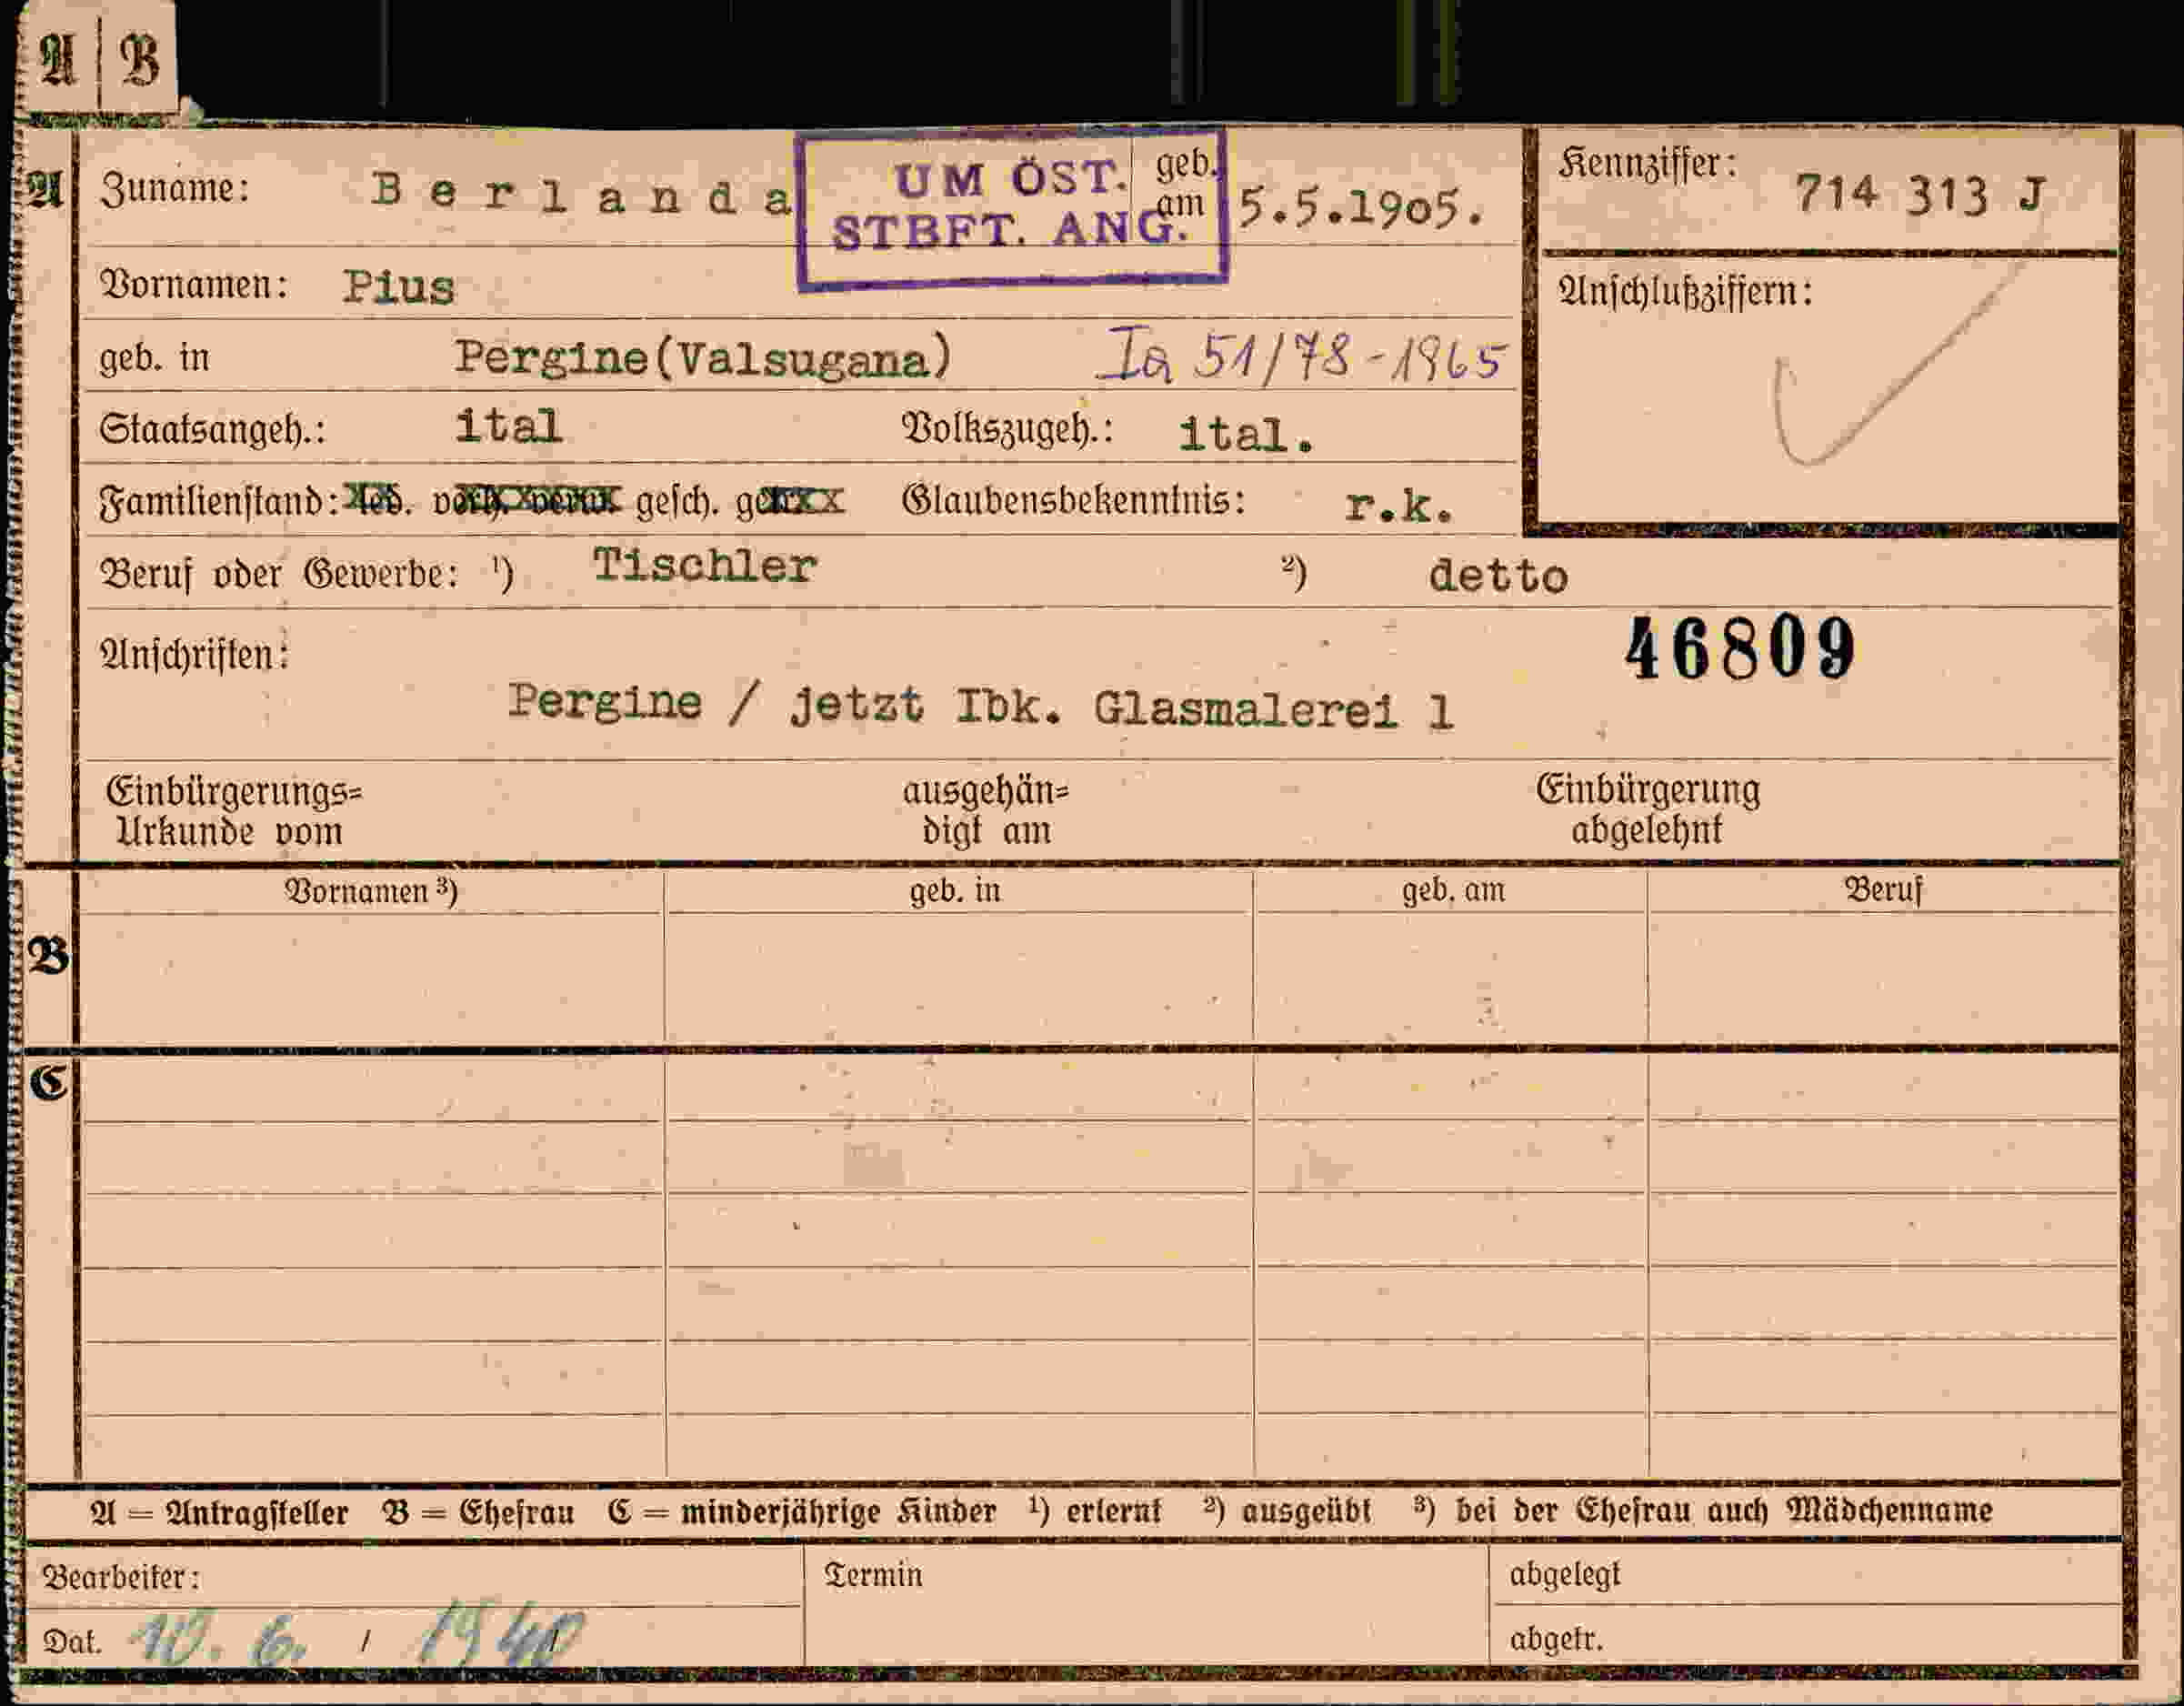 A B
A Zuname: Berlanda geb. am 5.5.1905.
UM ÖST.
STBFT. ANG.
Kennziffer: 714 313 J
Vornamen: Pius
Anschlußziffern:
geb. in Pergine(Valsugana) Ia 51/78-1965
Staatsangeh.: ital Volkszugeh.: ital.
Familienstand: led. verh. verw. gesch. getr. Glaubensbekenntnis: r.k.
Beruf oder Gewerbe: ¹) Tischler ²) detto
46809
Anschriften:
Pergine / jetzt Ibk. Glasmalerei 1
Einbürgerungs= ausgehän= Einbürgerung
Urkunde vom digt am abgelehnt
Vornamen ³) geb. in geb. am Beruf
B
C
A = Antragsteller B = Ehefrau C = minderjährige Kinder ¹) erlernt ²) ausgeübt ³) bei der Ehefrau auch Mädchenname
Bearbeiter: Termin abgelegt
Dat. 10. 6. / 1940 abgetr.